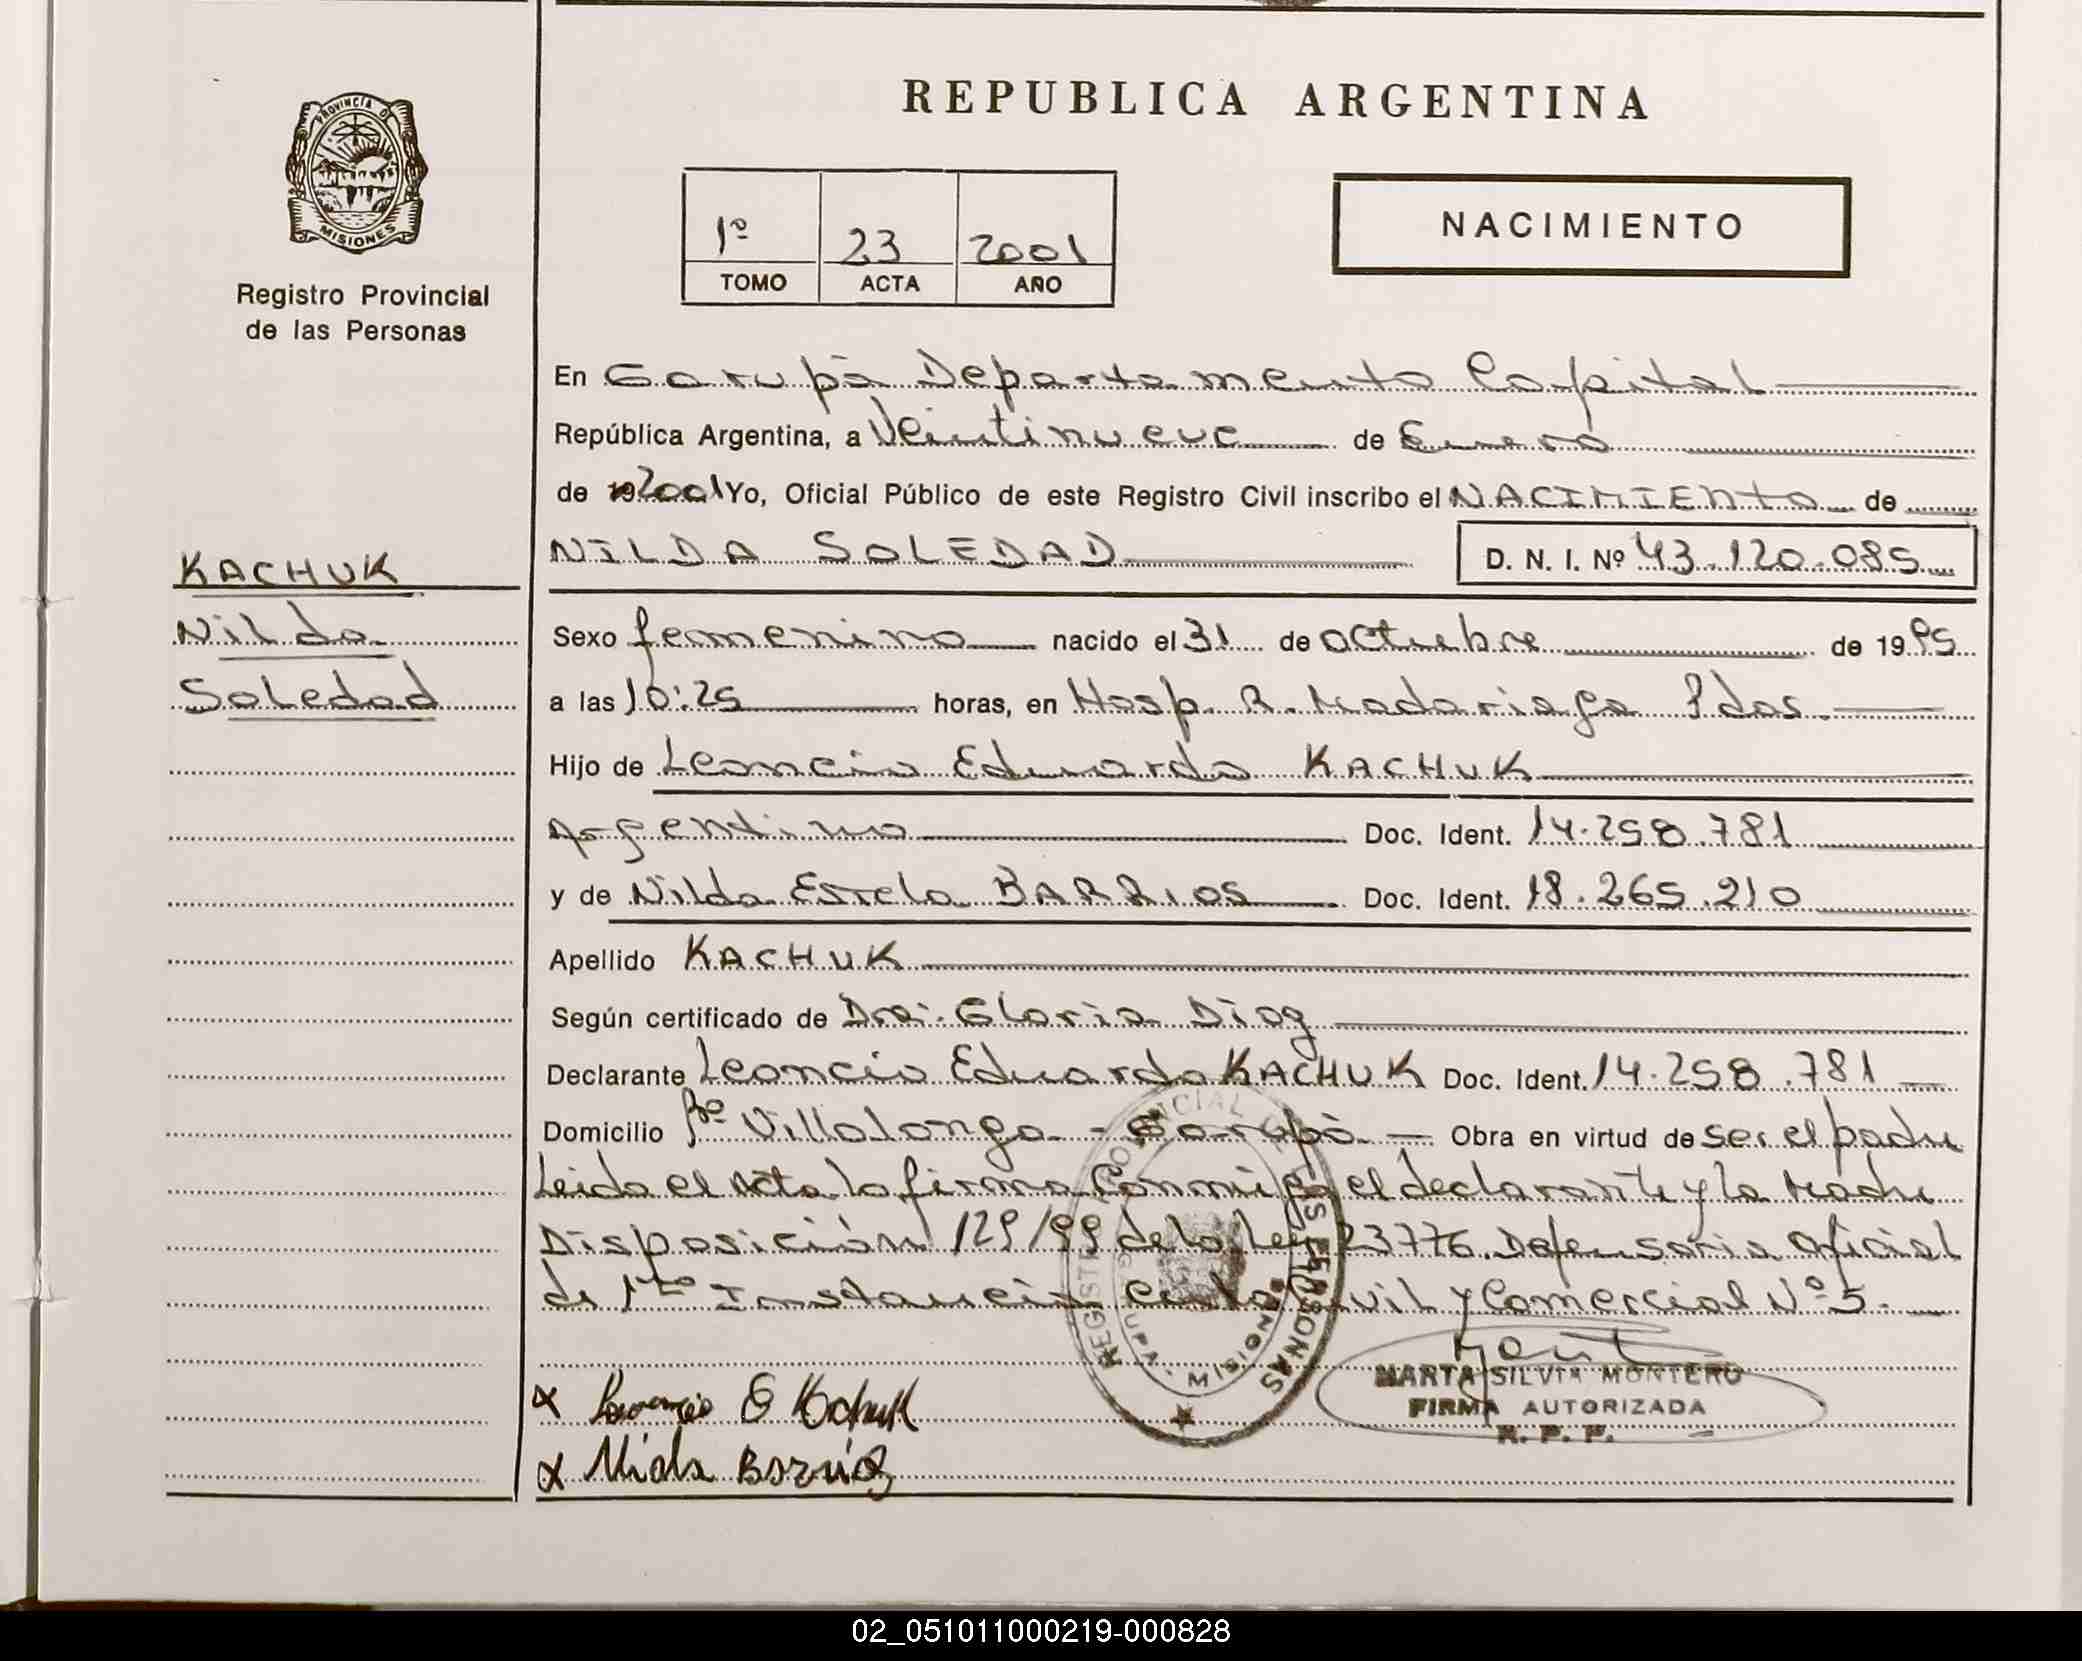 REPUBLICA ARGENTINA
PROVINCIA D
MISIONES
Registro Provincial
de las Personas
1º 23 2001
TOMO ACTA AÑO
NACIMIENTO
En Garupá Departamento Capital
República Argentina, a Veintinueve de Enero
de 19 2001 Yo, Oficial Público de este Registro Civil inscribo el NACIMIENTO de
NILDA SOLEDAD D. N. I. Nº 43.120.085
KACHUK
Nilda
Soledad
Sexo femenino nacido el 31 de octubre de 1995
a las 10:25 horas, en Hosp. R. Madariaga Pdas.
Hijo de Leoncio Eduardo KACHUK
Argentino Doc. Ident. 14.258.781
y de Nilda Estela BARRIOS Doc. Ident. 18.265.210
Apellido KACHUK
Según certificado de Dra. Gloria Diaz
Declarante Leoncio Eduardo KACHUK Doc. Ident. 14.258.781
Domicilio Bº Villalonga - Garupá - Obra en virtud de ser el padre
Leida el Acta la firma Conmigo el declarante y la Madre
Disposición 129/99 de la Ley 23776 Defensoria Oficial
de 1ra Instancia en lo Civil y Comercial Nº 5.
REGISTRO PROVINCIAL DE LAS PERSONAS
GARUPA - MISIONES
MARTA SILVIA MONTERO
FIRMA AUTORIZADA
R. P. P.
x Leoncio E Kachuk
x Nilda Barrios
02_051011000219-000828